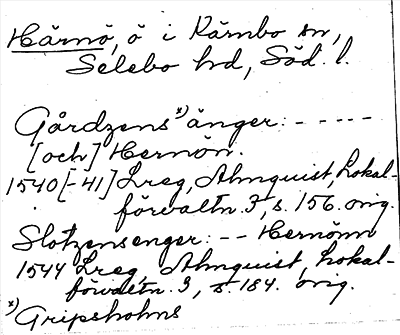 Härnö, ö i Kärnbo sn,
Selebo hd, Söd. l.
Gårdzens ˣ⁾ änger: - - - - -
[och] Hernön.
1540[-41] Lreg, Almquist, Lokal-
förvaltn. 3, s. 156. orig.
Slotzensenger: - - Hernönn
1544 Lreg Almquist, Lokal-
förvaltn. 3, s. 184. orig.
ˣ⁾ Gripsholms